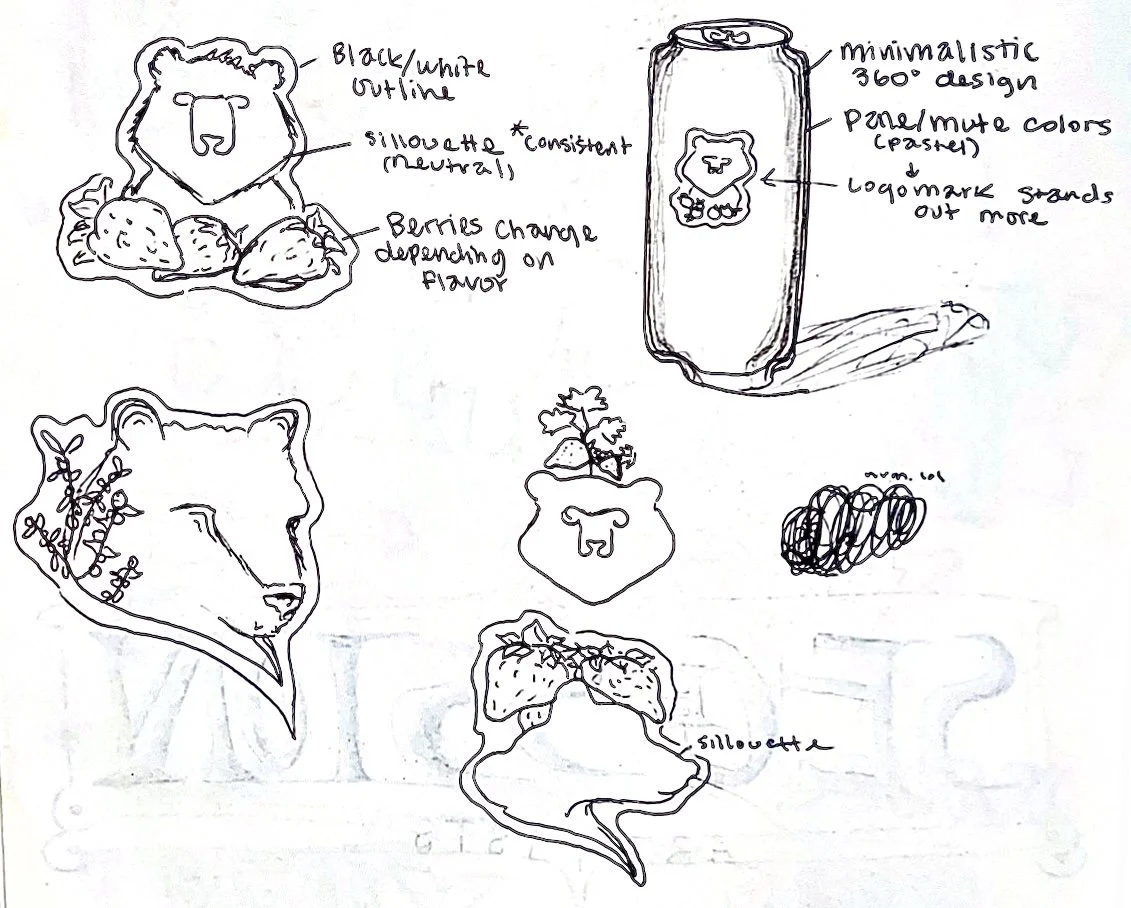 Black/white
outline
sillouette *consistent
(neutral)
Berries change
depending on
flavor
minimalistic
360° design
Pane/mute colors
(pastel)
↓
Logomark stands
out more
sillouette